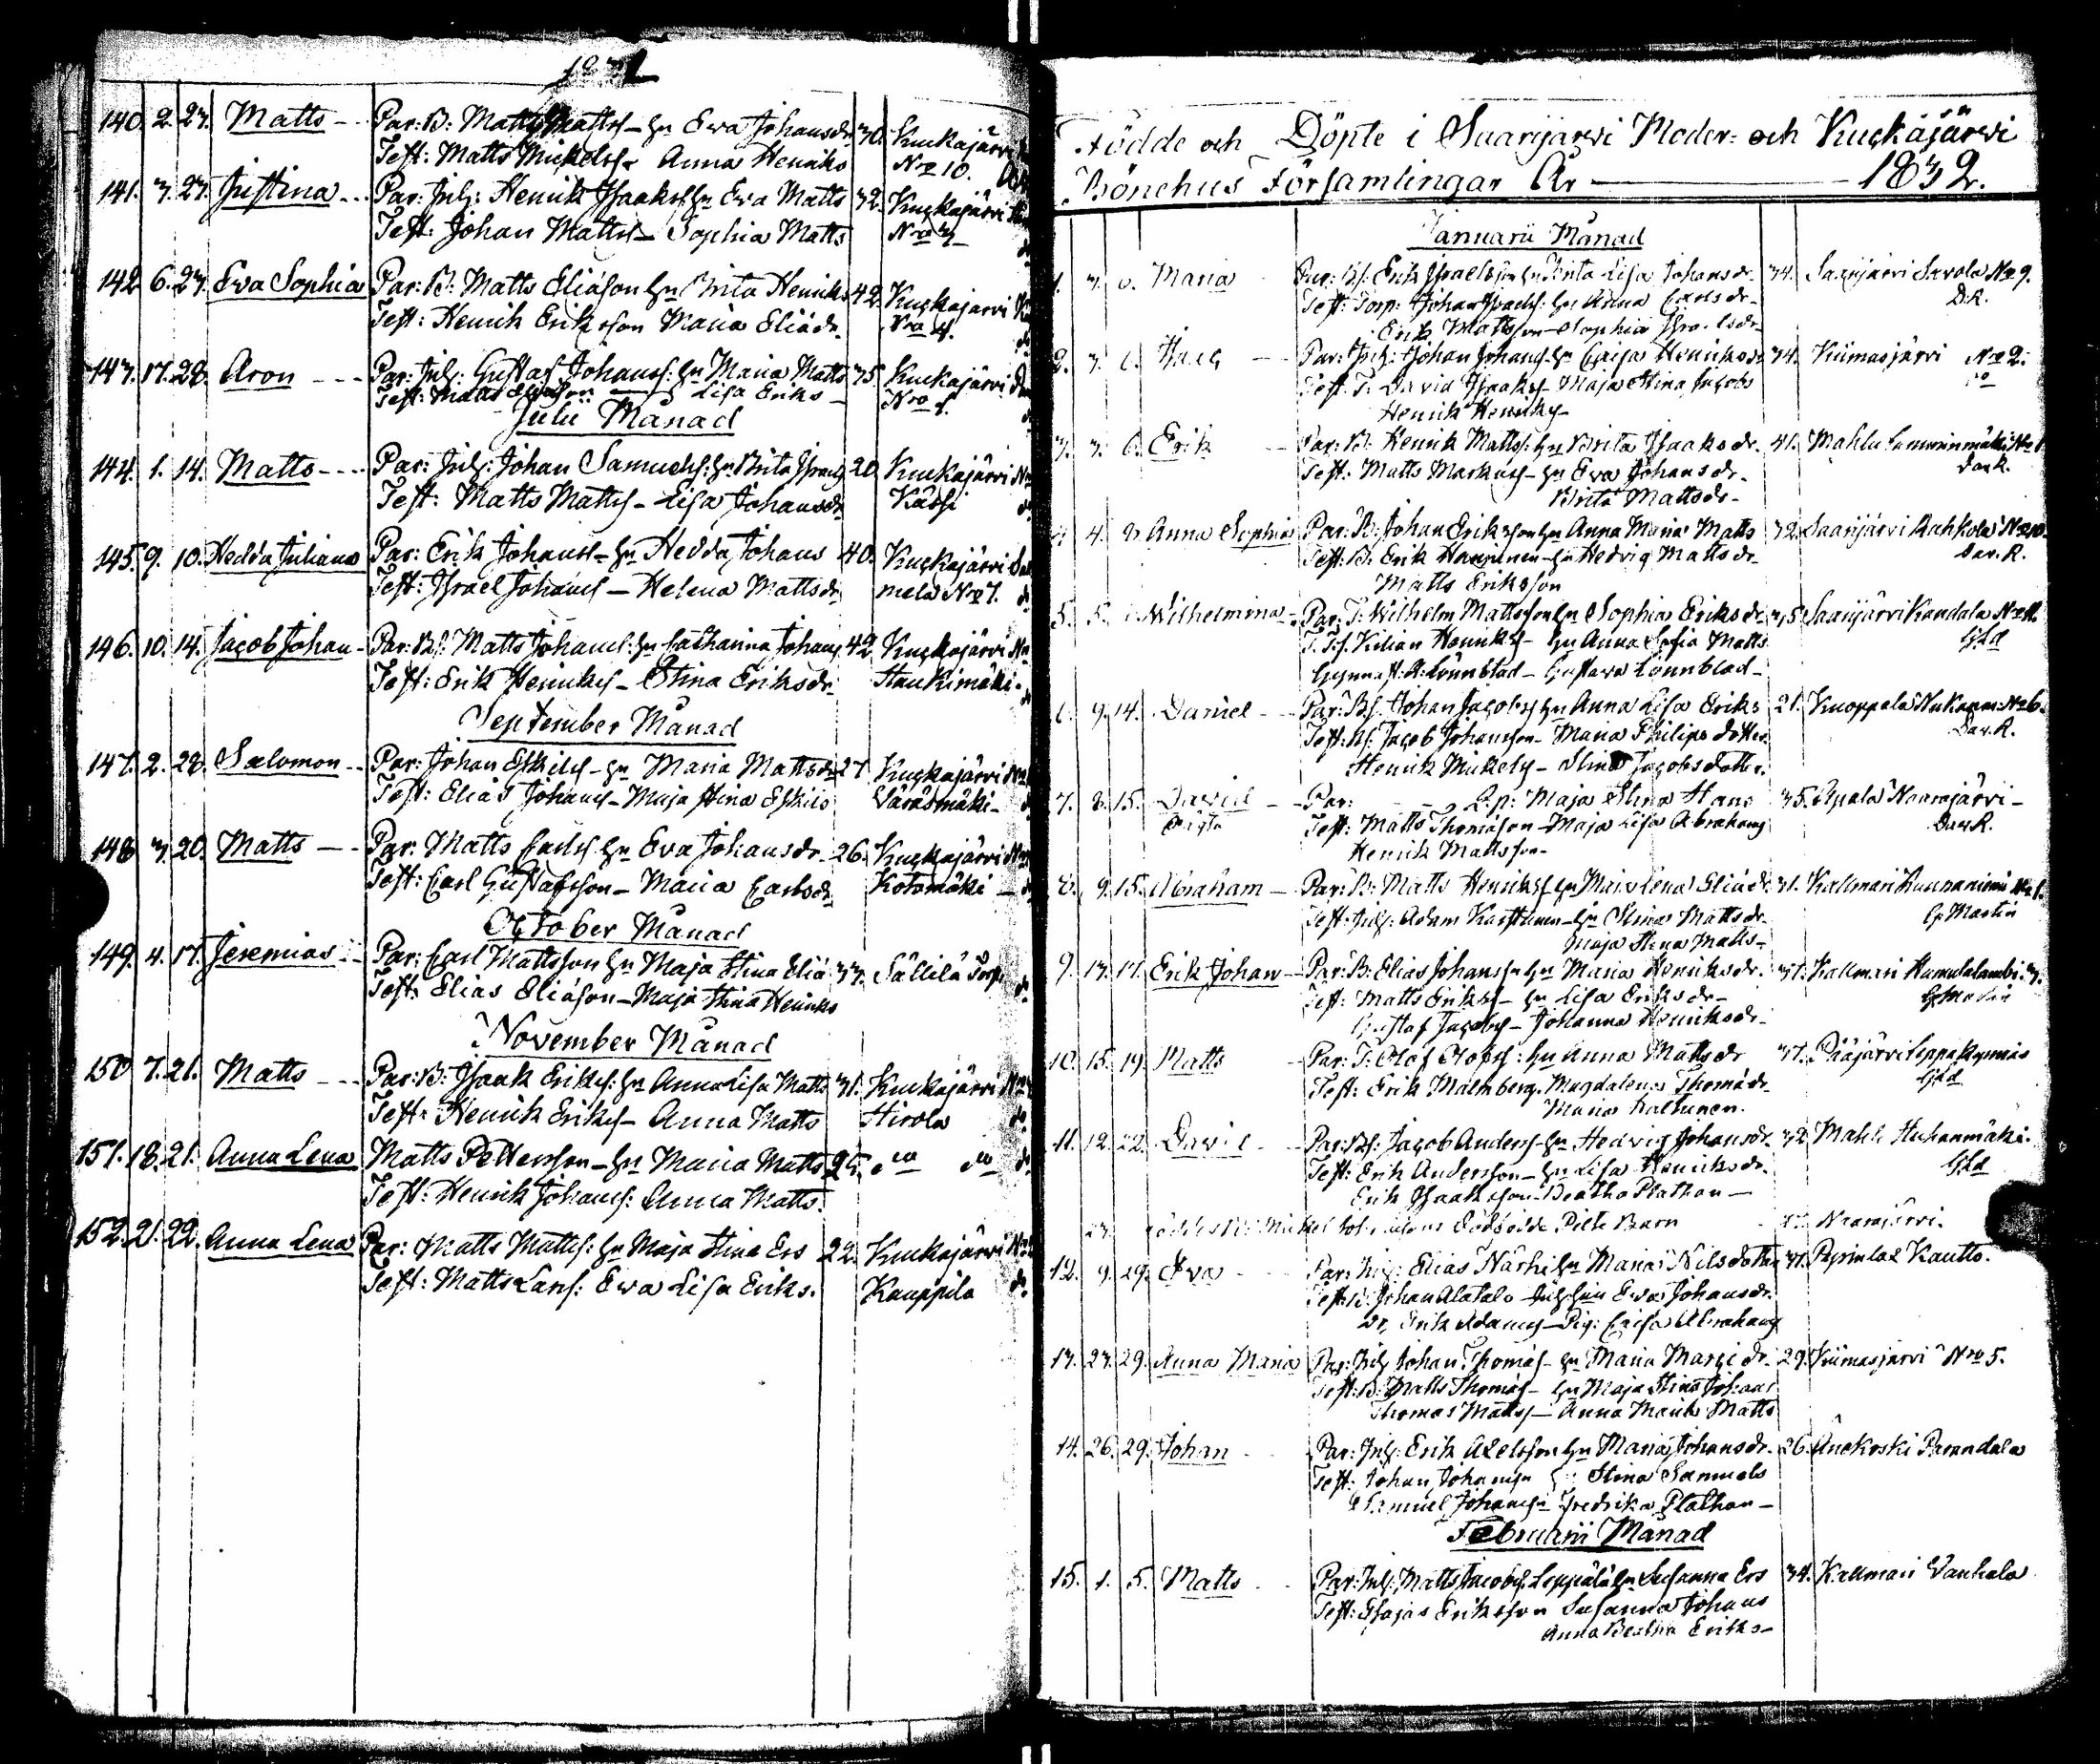 1831
140. 2. 23. Matts -- Par: B: Matts Mattss- hu Eva Johansdr 30. Kuckajärvi
Test: Matts Mickelss- Anna Henriks Nro 10.
141. 3. 23. Justina -- Par: Inh: Henrik Isaakss hu Eva Matts 32. Kuckajärvi
Test: Johan Mattss- Sophia Matts Nro 3
142 6. 23. Eva Sophia Par: B: Matts Eliáson hu Brita Henriks 42. Kuckajärvi
Test: Henrik Eriksson Maria Eliádr. Nro 4.
143. 17. 28. Aron --- Par: Inh: Gustaf Johanss: hu Maria Matts 35. Kuckajärvi
Test: Matts Lisa Eriks- Nro 1.
Julii Månad
144. 1. 14. Matts --- Par: Inh: Johan Samuelss: hu Brita Israels 20. Kuckajärvi
Test: Matts Mattss- Lisa Johansdr Kässi
145. 9. 10. Hedda Juliana Par: Erik Johanss- hu Hedda Johans 40. Kuckajärvi
Test: Israel Johanss - Helena Mattsdr mela Nro 7.
146. 10. 14. Jacob Johan - Par: Bs: Matts Johanss: hu Catharina Johans 42 Kuckajärvi
Test: Erik Henrikss - Stina Eriksdr. Haukimäki.
September Månad
147. 2. 28. Salomon -- Par: Johan Eskilss - hu Maria Mattsdr 27 Kuckajärvi
Test: Elias Johanss - Maja Stina Eskils Väräsmäki-
148 3. 20. Matts -- Par: Matts Carlss hu Eva Johansdr. 26. Kuckajärvi
Test: Carl Gustafsson - Maria Carlsdr. Kotamäki -
October Månad
149. 4. 17. Jeremias -- Par: Carl Mattsson hu Maja Stina Eliá 33. Sällilä Torp.
Test: Elias Eliáson - Maja Stina Henriks
November Månad
150 7. 21. Matts --- Par: B: Isaak Erikss: hu Anna Lisa Matts 31. Kuckajärvi
Test: Henrik Erikss - Anna Matts Hirola
151. 18. 21. Anna Lena Matts Pettersson - hu Maria Matts 25. do do
Test: Henrik Johanss: Anna Matts.
152. 21. 22. Anna Lena Par: Matts Mattss: hu Maja Stina Ers 22. Kuckajärvi
Test: Matts Larss: Eva Lisa Eriks. Kauppila
Födde och Döpte i Saarijärvi Moder- och Kuckajärvi
Bönehus Församlingar År 1832.
Januarii Månad
1. 3. 6. Maria Par: Bs: Erik Israelsson hu Brita Lisa Johansdr. 34. Saarijärvi Savola No 9.
Test: Torp: Johan Israelss: hu Anna Carlsdr- D.R.
Erik Mattsson - Sophia Israelsdr
2. 3. Par: Inh: Johan Johanss- hu Caisa Henriksdr 34. Kiimasjärvi No 2.
Test: T. David Isaakss Maja Stina Jacobs do
Henrik Henrikss-
3. 3. 6. Erik Par: B: Henrik Mattss: hu Brita Isaaksdr. 41. Mahlu
Test: Matts Markuss - hu Eva Johansdr. Dav. R.
Brita Mattsdr-
4. 4. Anna Sophia Par: B: Johan Eriksson hu Anna Maria Matts 32. Saarijärvi Rahkola No 10.
Test: B: Erik hu Hedvig Mattsdr- Dav. R.
Matts Eriksson
5. 5. Wilhelmina Par: T: Wilhelm Mattsson hu Sophia Eriksdr. 35 Saarijärvi Kandala
Kilian Henrikss - hu Anna Sofia Matts GLd
Lönnblad - Gustava Lönnblad-
6. 9. 14. Daniel Par: Bs: Johan Jacobss hu Anna Lisa Eriks 21. Kuoppala No 6.
Test: Bs: Jacob Johansson- Maria Philips dotter. Dav. R.
Henrik Mickelss - Stina Jacobsdotter.
7. 8. 15. David Par: -- Lp: Maja Stina Hans 35. Naarajärvi-
oägta Test: Matts Thomáson - Maja Lisa Abrahams Dav. R.
Henrik Mattsson-
8. 9. 15. Abraham - Par: B: Matts Henrikss hu Maja Lena Eliádr. 31. Kallmari
Test: Inh: Adam Karhunen - hu Stina Mattsdr- G. Martin
Maja Stina Matts-
9. 13. 17. Erik Johan - Par: B: Elias Johansson hu Maria Henriksdr. 37. Kallmari Humulalambi. 3.
Test: Matts Erikss - hu Lisa Eriksdr- G Martin
Gustaf Jacobss - Johanna Henriksdr-
10. 15. 19. Matts Par: T: Olof Olofss: hu Anna Mattsdr 37. Pääjärvi
Test: Erik Malmberg. Magdalena Thomádr. GLd
Maria Kaltunen.
11. 12. 22. David Par: Bs: Jacob Anderss- hu Hedvig Johansdr. 32 Mahlu Huhanmäki.
Test: Erik Andersson - hu Lisa Henriksdr. GLd
Erik Isaaksson - Beatha Plathan -
23. Dödfödde Pilte Barn Naarajärvi.
12. 9. 29. Eva Par: Inh: Elias Närhi hu Maria Nilsdotter 31. Pyrinlax Kautto.
Test: B: Johan Alatalo hu Eva Johansdr.
Dr. Erik Adamss - Pig: Caisa Abrahams
13. 23. 29. Anna Maria Par: Inh: Johan Thomáss- hu Maria Marcidr. 29. Kiimasjärvi Nro 5.
Test: B: Matts Thomáss - hu Maja Stina Johans
Thomas Mattss - Anna Maria Matts
14. 26. 29. Johan Par: Inh: Erik Axelsson hu Maria Johansdr. 26. Änekoski Parandala
Test: Johan Johansson hu Stina Samuels
Samuel Johanss- Fredrika Plathan -
Februarii Månad
15. 1. 5. Matts Par: Inh: Matts Jacobss Leppälä hu Susanna Ers 34. Kallmari Vanhala
Test: Esajas Eriksson Susanna Johans
Anna Beatha Eriks-